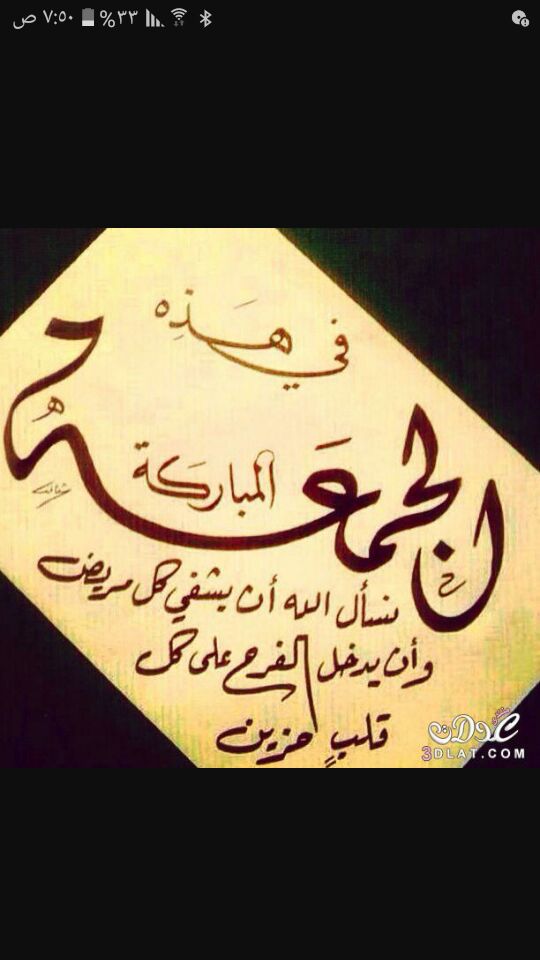 ٧:٥٠ ص ٣٣%
في هَذِه
الجمعَة
المباركَة
نسأل الله أن يشفي كل مريض
وأن يدخل الفرح على كل
قلبٍ حزين
عدلات
3DLAT.COM